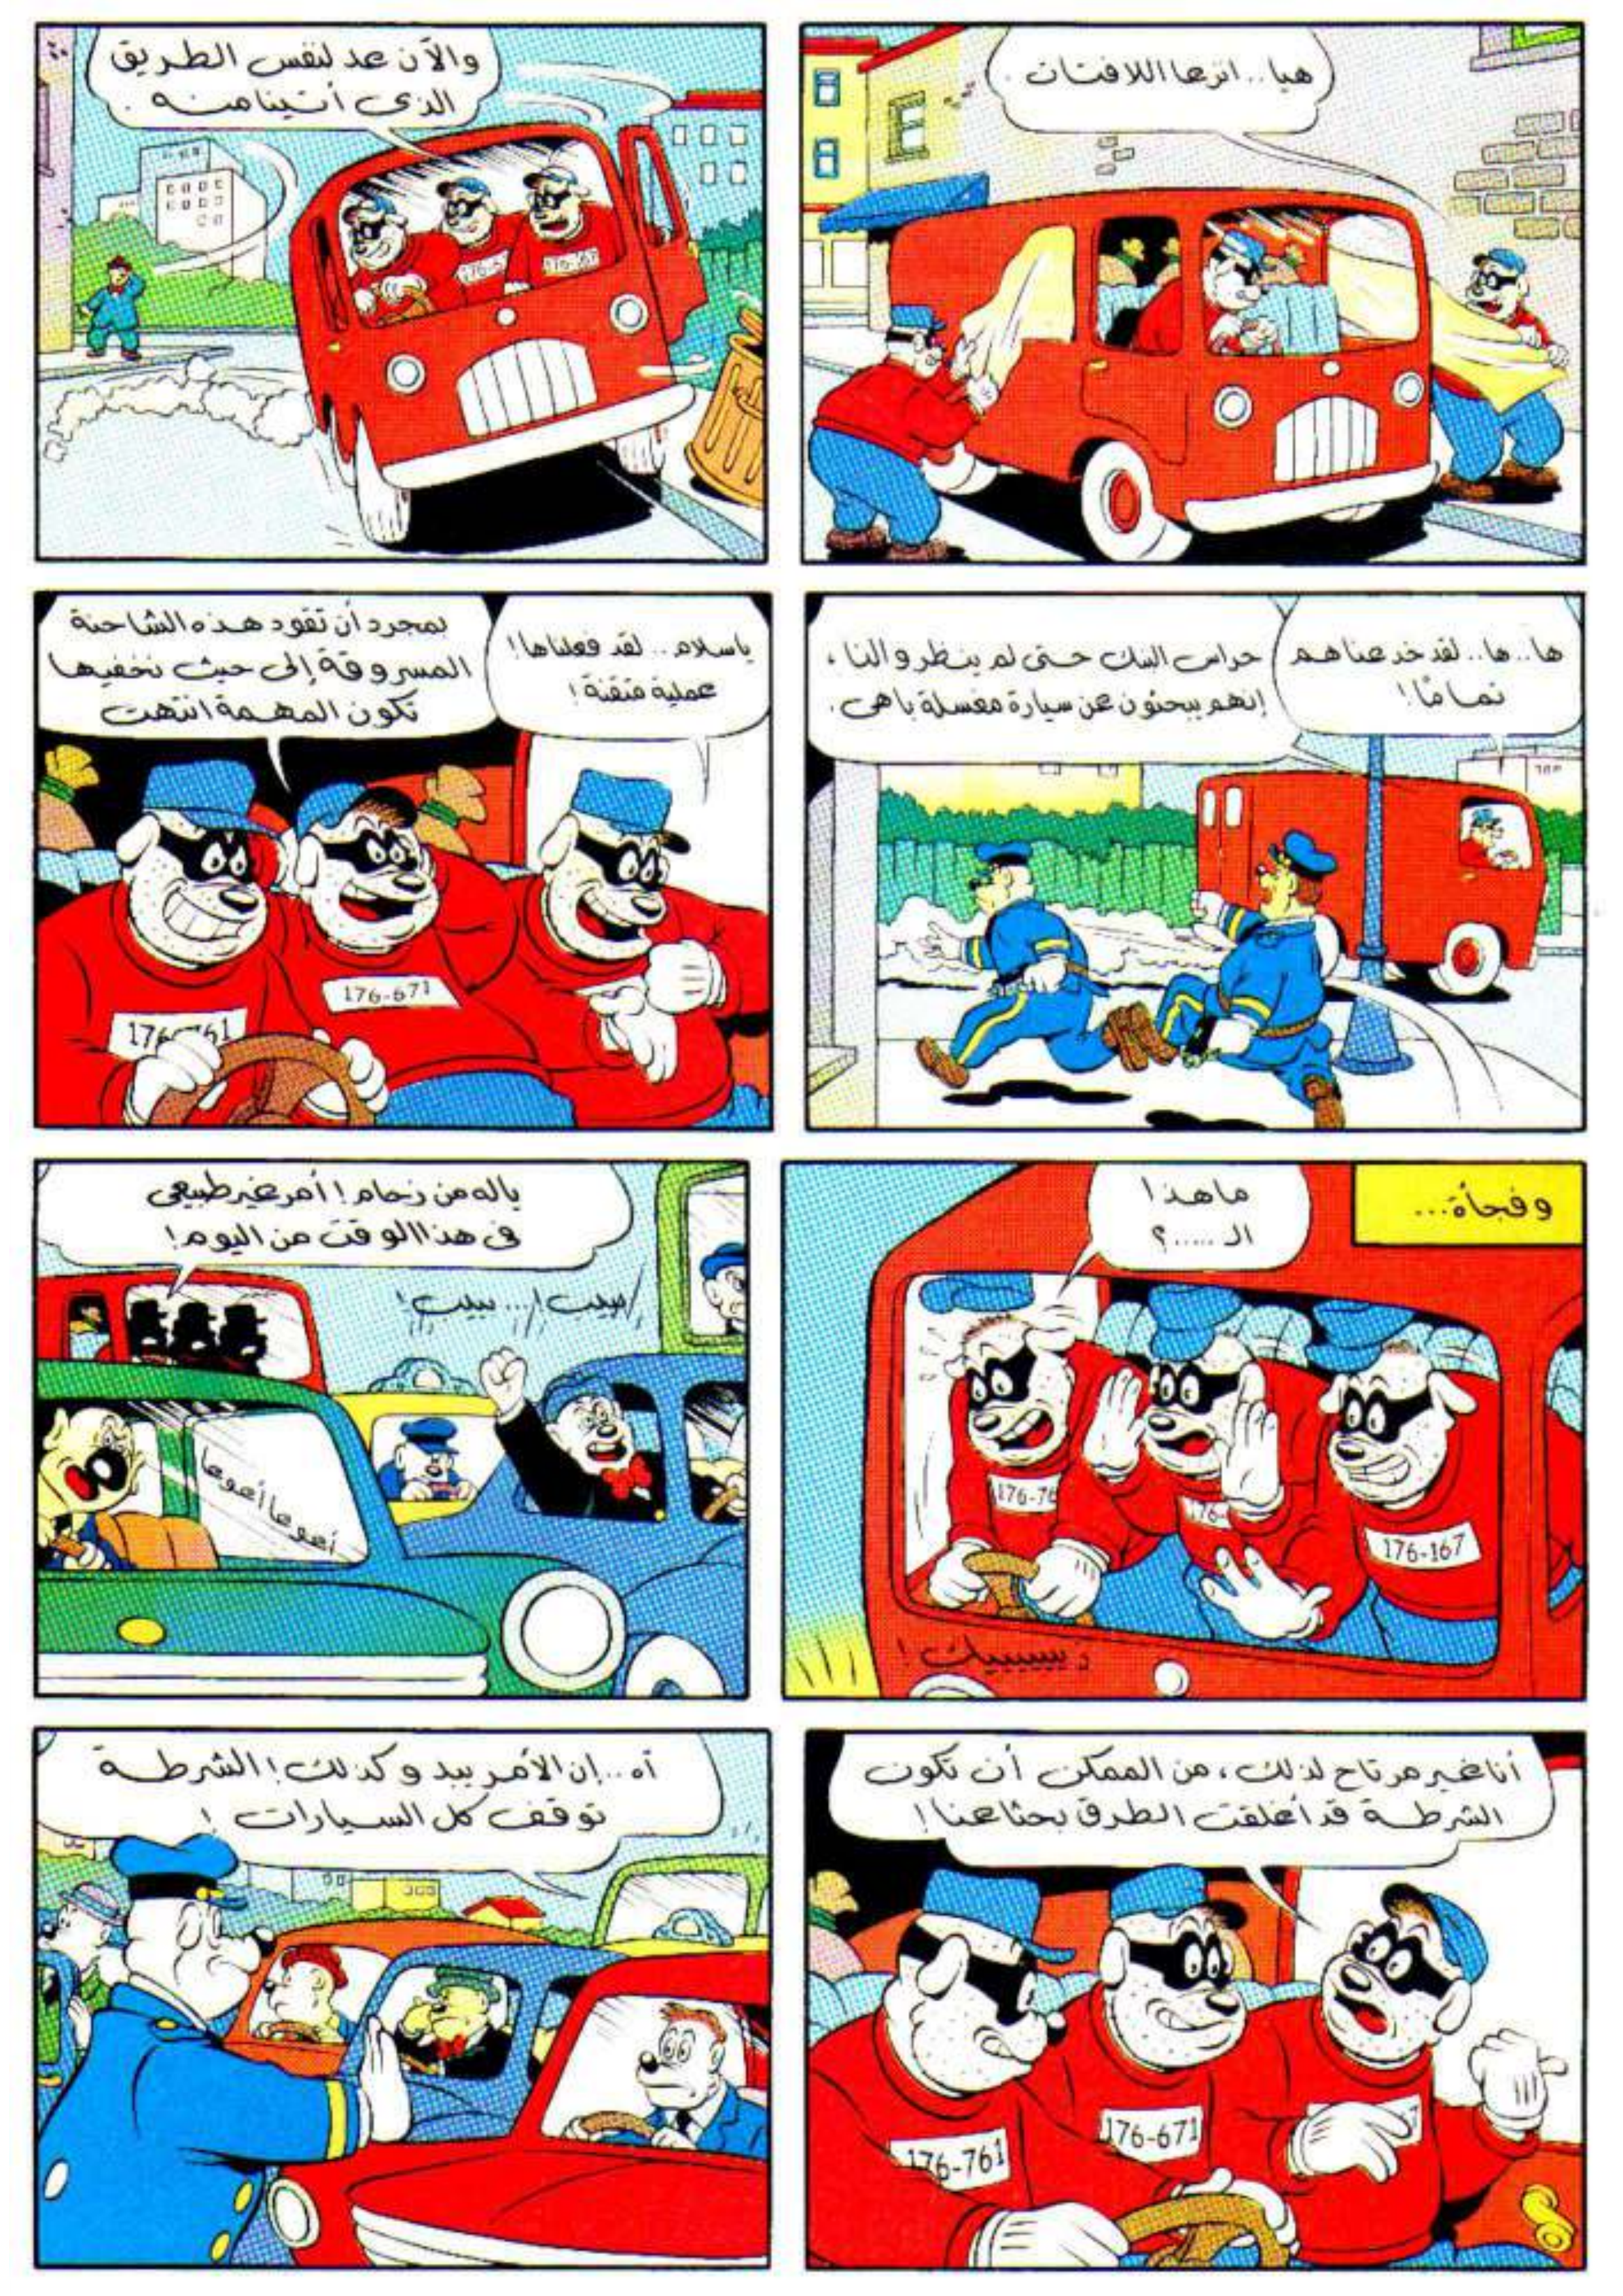 هيا.. انزعا اللافتات.
والآن عد لنفس الطريق
الذى أتينا منه.
ها.. ها.. لقد خدعناهم
تمامًا!
حراس البنك حتى لم ينظروا لنا،
إنهم يبحثون عن سيارة مغسلة باهى.
ياسلام.. لقد فعلناها!
عملية متقنة!
بمجرد أن تقود هذه الشاحنة
المسروقة إلى حيث نخفيها
تكون المهمة انتهت
176-671
وفجأة...
ماهذا
الـ .....؟
176-76
176-
176-167
ياله من زحام! أمر غير طبيعى
فى هذا الوقت من اليوم!
بيب!... بيب!
أنا غير مرتاح لذلك، من الممكن أن تكون
الشرطة قد أغلقت الطرق بحثا عنا!
176-761
176-671
آه... إن الأمر يبدو كذلك! الشرطة
توقف كل السيارات!